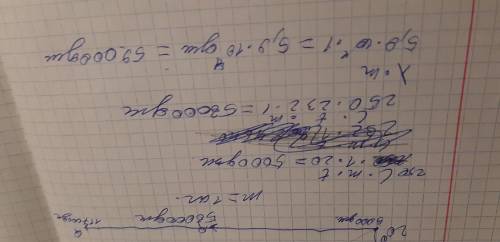 20°
5000дж 58000дж
m = 1 кг.
C · m · t
250 · 1 · 20 = 5000дж
C · t · m
250 · 232 · 1 = 58000дж
λ · m
5,9 · 10⁴ · 1 = 5,9 · 10⁴ дж = 59000дж